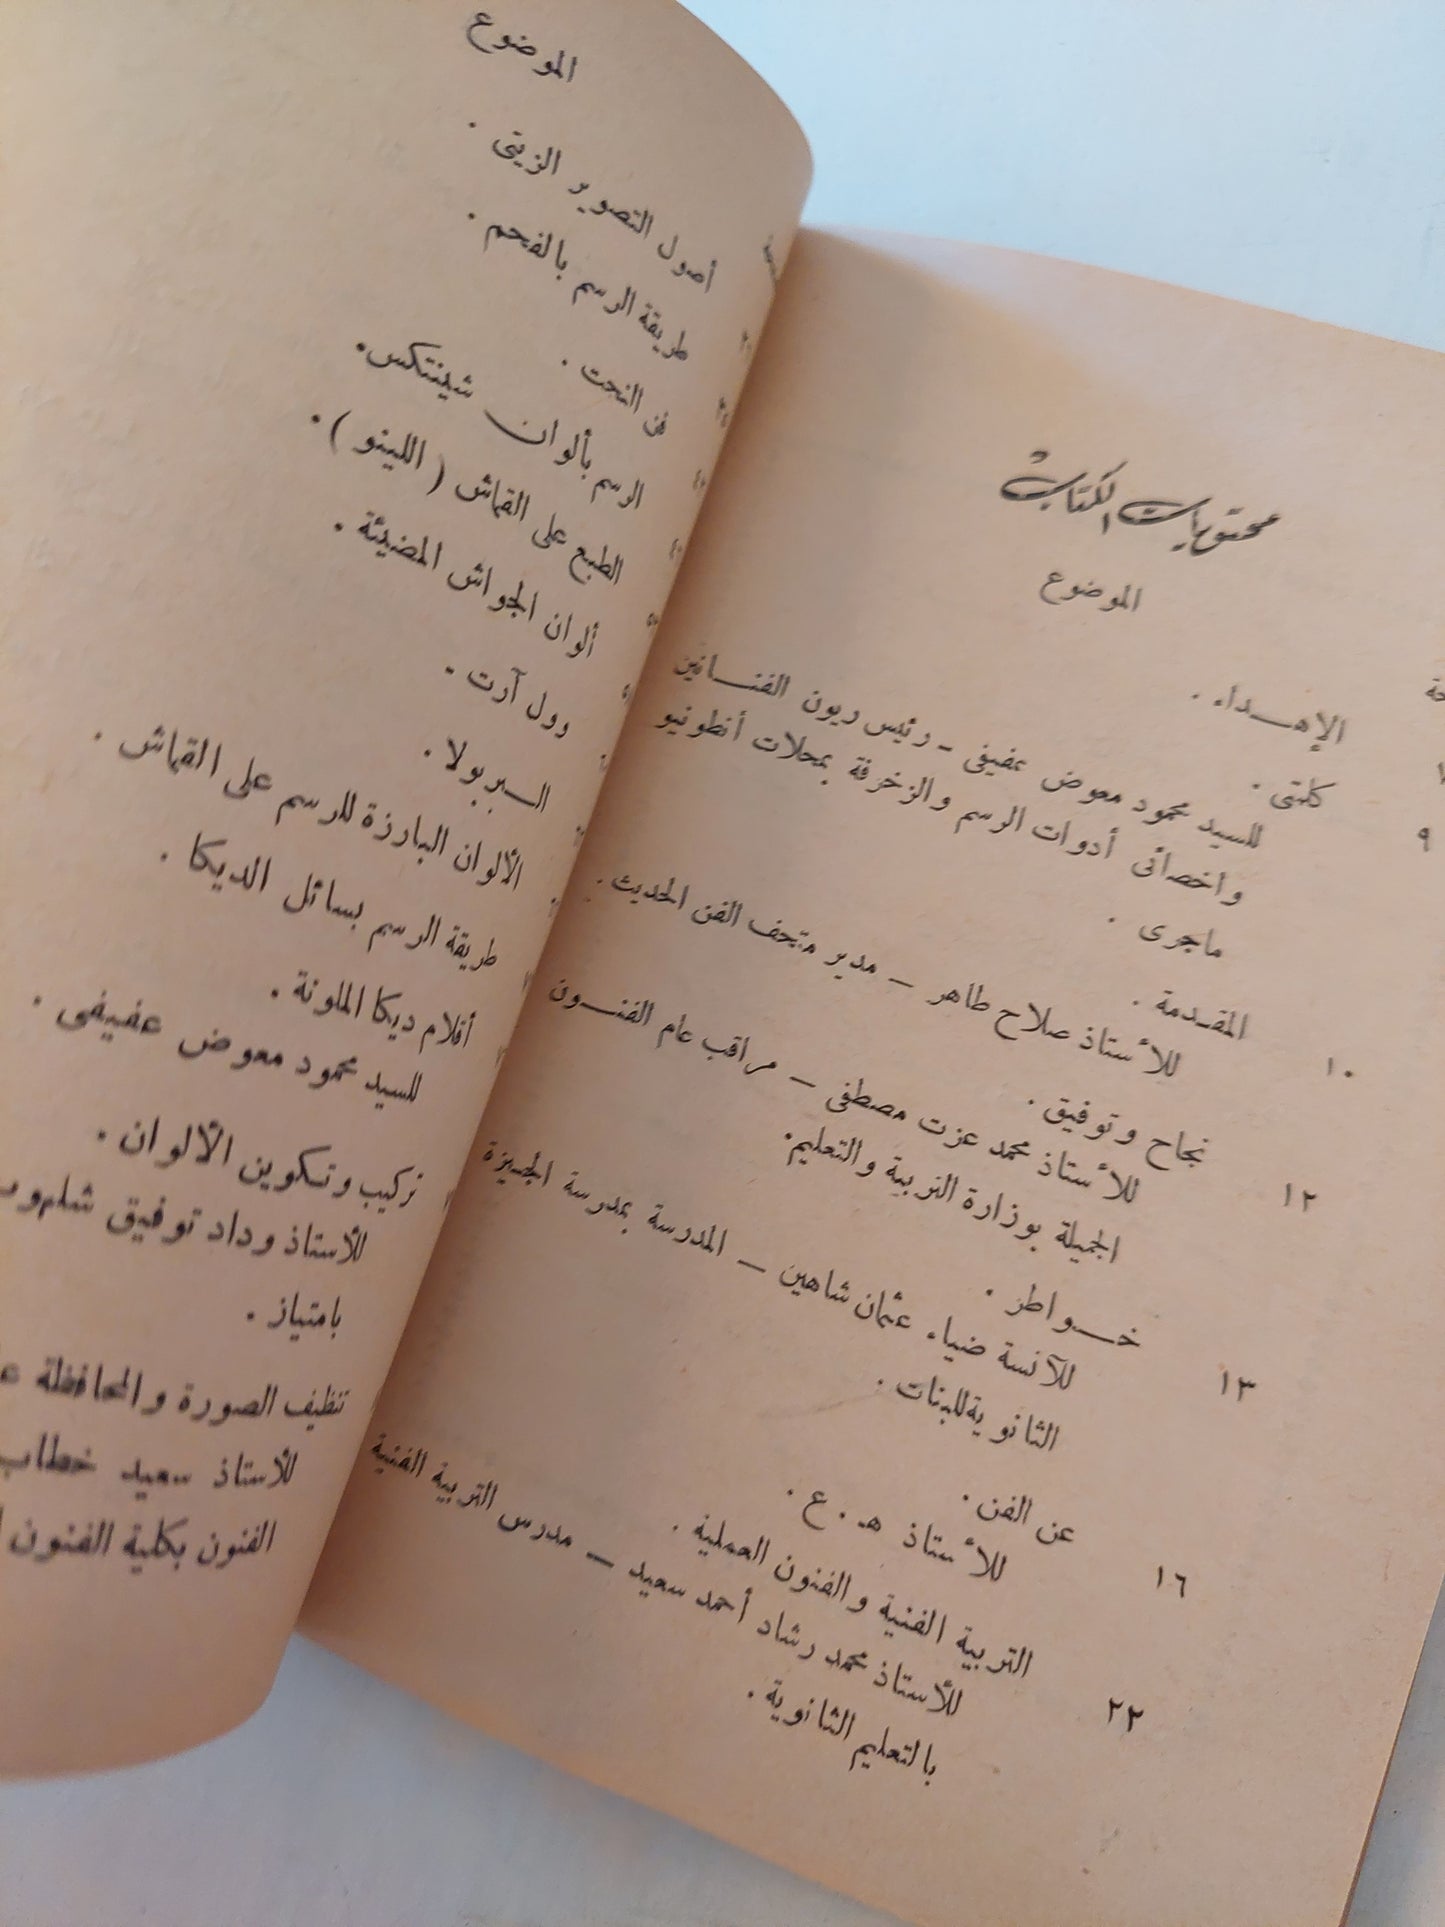 محتويات الكتاب
الموضوع
الإهـــداء .
كلمتى .
٩
للسيد محمود معوض عفيفى - رئيس ريون الفنـــانين
وأخصائى أدوات الرسم والزخرفة بمحلات أنطونيو
ماجرى .
المقـدمة .
١٠
للأستاذ صلاح طاهر — مدير متحف الفن الحديث .
نجاح وتوفيق .
١٢
للأستاذ محمد عزت مصطفى — مراقب عام الفنـــون
الجميلة بوزارة التربية والتعليم .
خـــواطر .
١٣
للآنسة ضياء عثمان شاهين — المدرسة بمدرسة الجـيزة
الثانوية للبنات .
عن الفن .
١٦
للأستاذ هـ . ع .
التربية الفنية والفنون العملية .
٢٢
للأستاذ محمد رشاد أحمد سعيد — مدرس التربية الفنية
بالتعليم الثانوية .
الموضوع
أصول التصوير الزيتى .
طريقة الرسم بالفحم .
فن النحت .
الرسم بألوان شينتكس .
الطبع على القماش ( اللينو ) .
ألوان الجواش المضيئة .
وول آرت -
الســبربولا .
الألوان البارزة للرسم على القماش .
طريقة الرسم بسائل الديكا .
أقلام ديكا الملونة .
للسيد محمود معوض عفيفى .
تركيب وتكوين الألوان .
للأستاذ وداد توفيق
بامتياز .
تنظيف الصورة والمحافظة
للأستاذ سعيد خطاب
الفنون بكلية الفنون